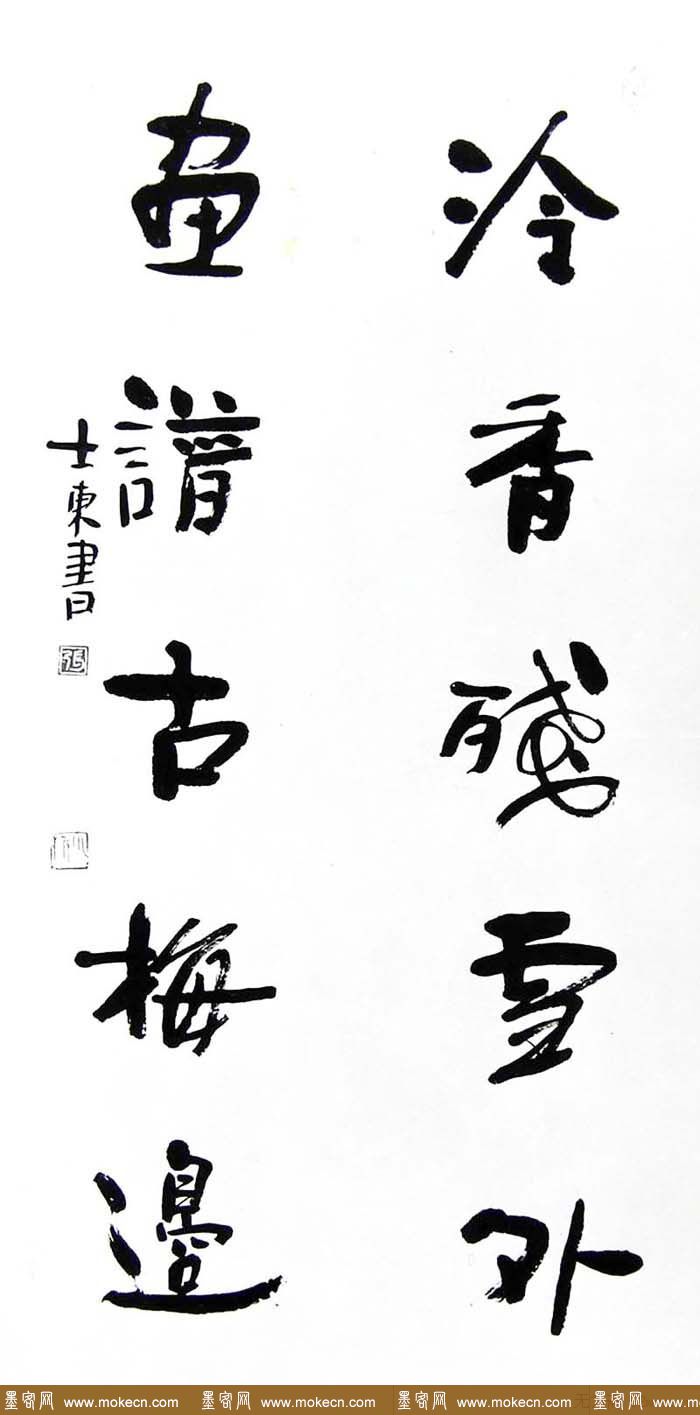 冷香殘雪外
畫譜古梅邊
士東書
張
墨客网 www.mokecn.com 墨客网 www.mokecn.com 墨客网 www.mokecn.com 墨客网 www.m